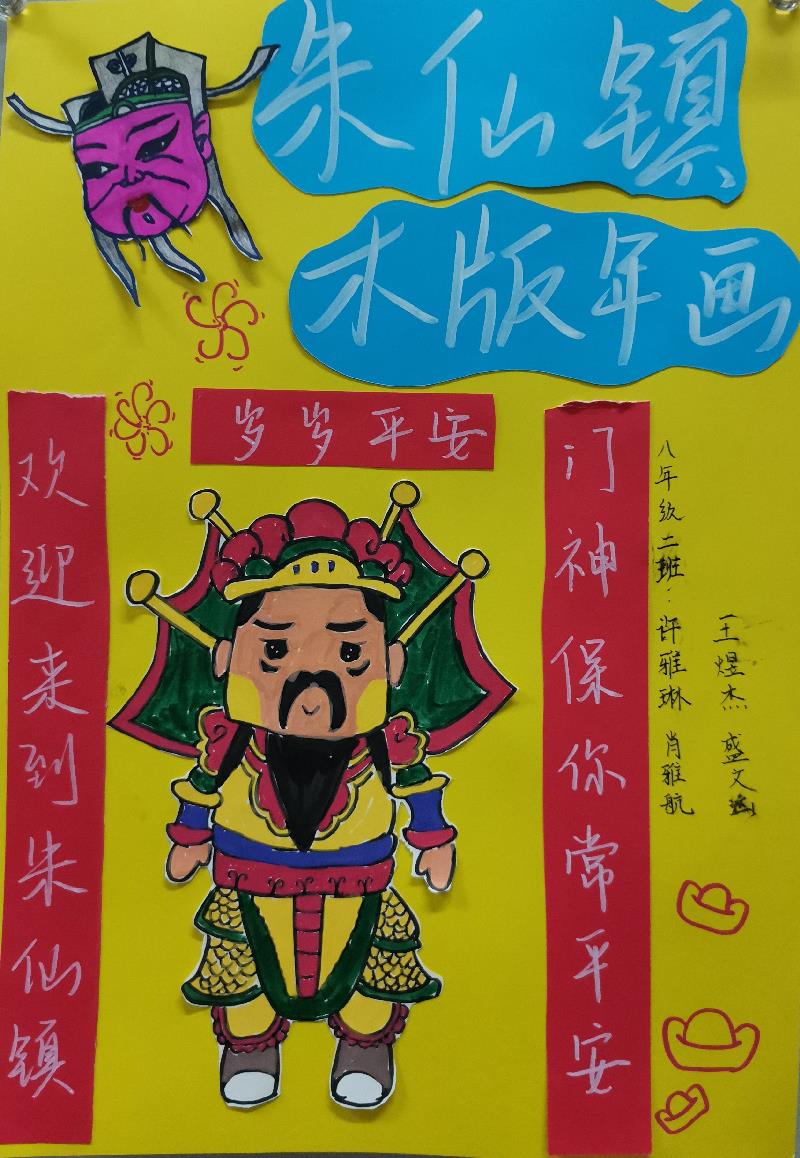 朱仙镇
木版年画
岁岁平安
欢迎来到朱仙镇
门神保你常平安
八年级二班：许雅琳 肖雅航
王煜杰 盛文